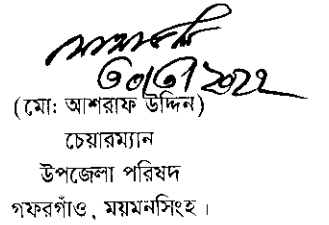 (মো: আশরাফ উদ্দিন)
চেয়ারম্যান
উপজেলা পরিষদ
গফরগাঁও, ময়মনসিংহ।